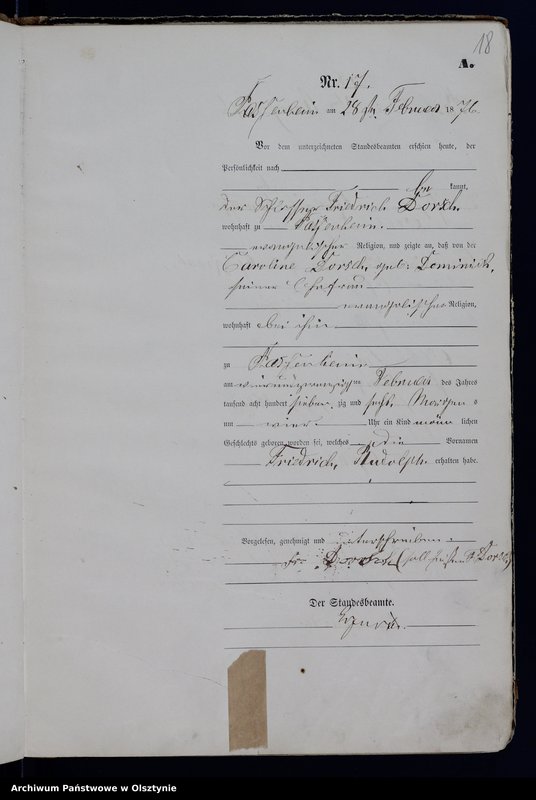 18
A.
Nr. 17.
Passenheim am 28ten Februar 1876
Vor dem unterzeichneten Standesbeamten erschien heute, der
Persönlichkeit nach
be kannt,
der Schlosser Friedrich Dorsch
wohnhaft zu Passenheim
evangelischer Religion, und zeigte an, daß von der
Caroline Dorsch, geb. Dominick,
seiner Ehefrau
evangelischer Religion,
wohnhaft bei ihm
zu Passenheim
am Februar des Jahres
tausend acht hundert sieben zig und sechs Morgens
um vier Uhr ein Kind männ lichen
Geschlechts geboren worden sei, welches die Vornamen
Friedrich Rudolph erhalten habe.
Vorgelesen, genehmigt und unterschrieben
Fr. Dorsch (soll heißen Dorsch)
Der Standesbeamte.
Archiwum Państwowe w Olsztynie